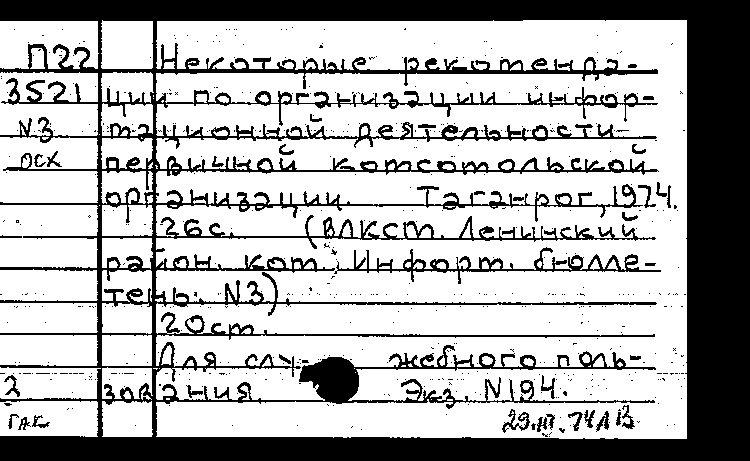 П22 Некоторые рекоменда-
3521 ции по организации инфор-
N3 мационной деятельности
осх первичной комсомольской
организации. Таганрог, 1974.
26с. (ВЛКСМ. Ленинский
район. ком. Информ. бюлле-
тень. N3).
20см.
Для слу- жебного поль-
2 зования. Экз. N194.
ГАК 29.III.74 ЛВ